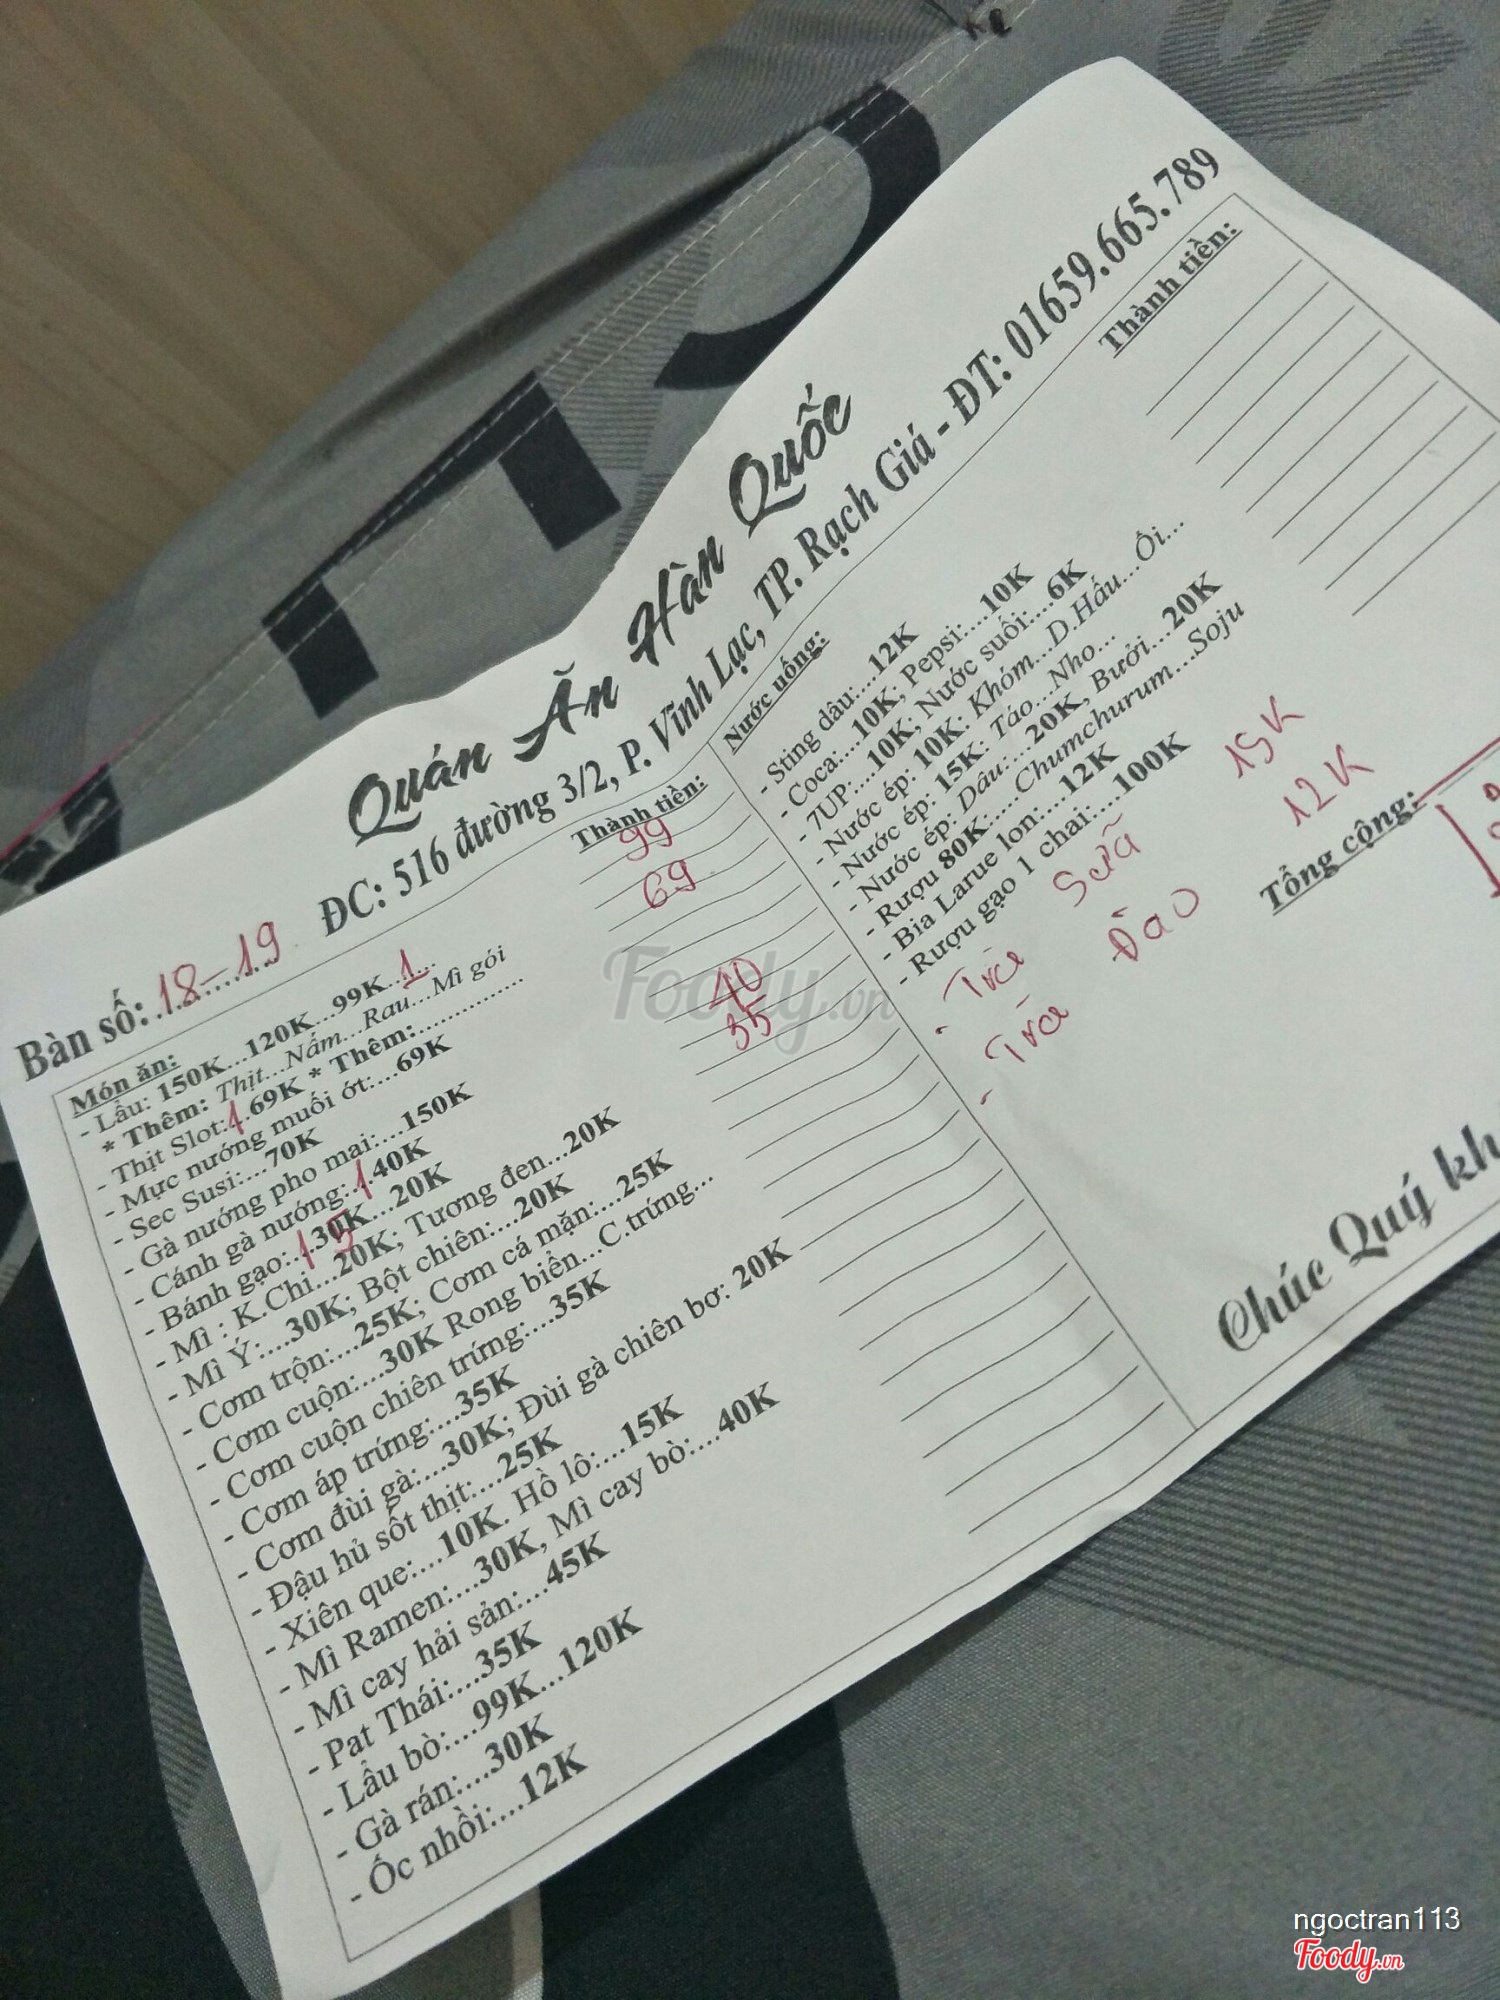 Quán Ăn Hàn Quốc
ĐC: 516 đường 3/2, P. Vĩnh Lạc, TP. Rạch Giá - ĐT: 01659.665.789
Bàn số: 18-19
Món ăn:
Thành tiền:
- Lẩu: 150K...120K...99K...1...
99
* Thêm: Thịt...Nấm...Rau...Mì gói
- Thịt Slot:1.69K * Thêm:...............
69
- Mực nướng muối ớt:...69K
- Sec Susi:...70K
- Gà nướng pho mai:...150K
- Cánh gà nướng:...1 40K
40
- Bánh gạo:...1 30K...20K
5
35
- Mì : K.Chi...20K; Tương đen...20K
- Mì Ý:...30K; Bột chiên:...20K
- Cơm trộn:...25K; Cơm cá mặn:...25K
- Cơm cuộn:...30K Rong biển...C.trứng...
- Cơm cuộn chiên trứng:...35K
- Cơm áp trứng:...35K
- Cơm đùi gà:...30K; Đùi gà chiên bơ: 20K
- Đậu hủ sốt thịt:...25K
- Xiên que:...10K. Hồ lô:...15K
- Mì Ramen:...30K, Mì cay bò:...40K
- Mì cay hải sản:...45K
- Pat Thái:...35K
- Lẩu bò:...99K...120K
- Gà rán:...30K
- Ốc nhồi:...12K
Nước uống:
Thành tiền:
- Sting dâu:...12K
- Coca:...10K; Pepsi:...10K
- 7UP:...10K; Nước suối:...6K
- Nước ép: 10K: Khóm...D.Hấu...Ổi...
- Nước ép: 15K: Táo...Nho...
- Nước ép: Dâu:...20K, Bưởi...20K
- Rượu 80K:.....Chumchurum...Soju
- Bia Larue lon:...12K
- Rượu gạo 1 chai:...100K
- Trà Sữa 15K
- Trà Đào 12K
Tổng cộng:
Chúc Quý kh
Foody.vn
ngoctran113
Foody.vn